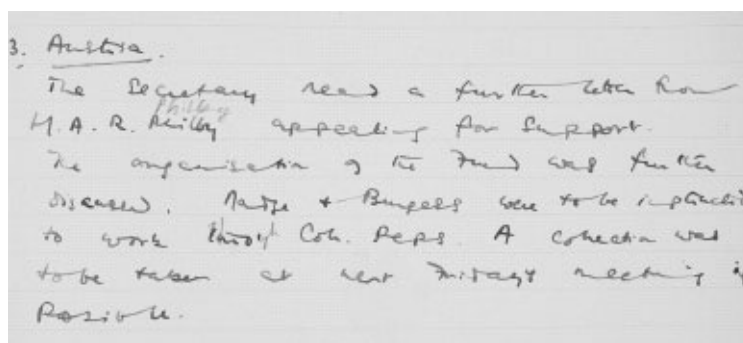 3. Austria.
The Secretary read a further letter from
Philby
H.A.R. Philby appealing for support.
The organisation of the Fund was further
discussed. Madge + Burgess were to be instructed
to work through Coll. Reps. A collection was
to be taken at next Friday's meeting if
Possible.